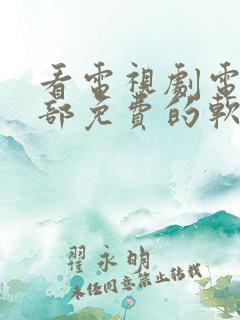 看電視劇電
部免費的軟
翟永明
未经同意禁止转载